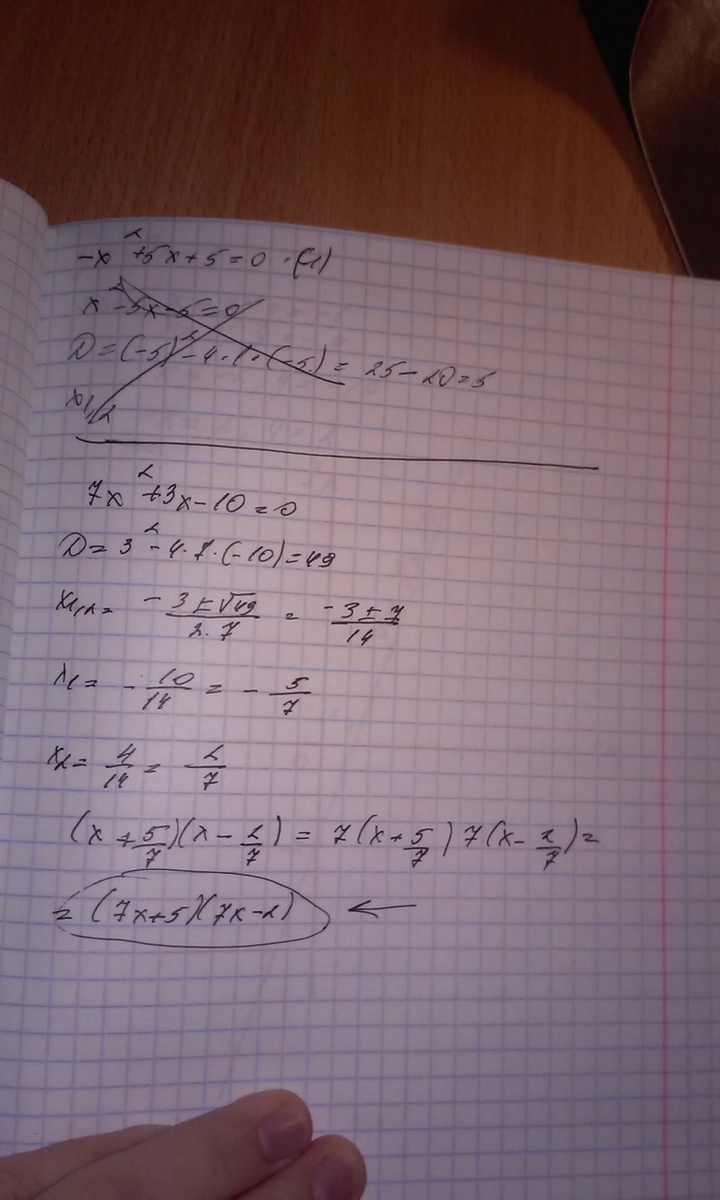 -x² + 5x + 5 = 0 · (-1)
x² - 5x - 5 = 0
D = (-5)² - 4 · 1 · (-5) = 25 - 20 = 5
x1,2
7x² + 3x - 10 = 0
D = 3² - 4 · 7 · (-10) = 49
x1,2 = -3 ± √49 / 2 · 7 = -3 ± 7 / 14
x1 = - 10/14 = - 5/7
x2 = 4/14 = 2/7
(x + 5/7)(x - 2/7) = 7(x + 5/7) 7(x - 2/7) =
= (7x + 5)(7x - 2) ←